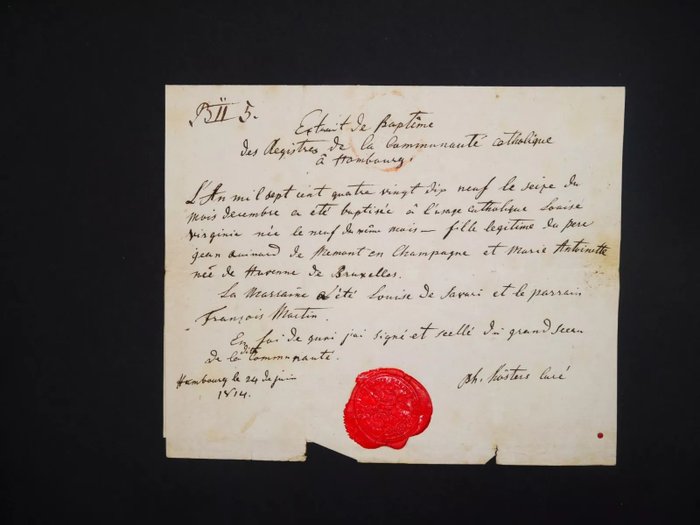 B II 5.
Extrait de Baptême
des Registres de la Communauté catholique
à Hambourg.
L'An mil sept cent quatre vingt dix neuf le seize du
mois decembre a été baptisée à l'usage catholique Louise
virginie née le neuf du même mois — fille legitime du pere
jean de en Champagne et Marie Antoinette
née de de Bruxelles.
La Marraine a été Louise de Savari et le parrain
François Martin.
En foi de quoi j'ai signé et scellé du grand sceau
de la dite Communauté.
Hambourg le 24 de juin
1814.
ph. Kösters Curé